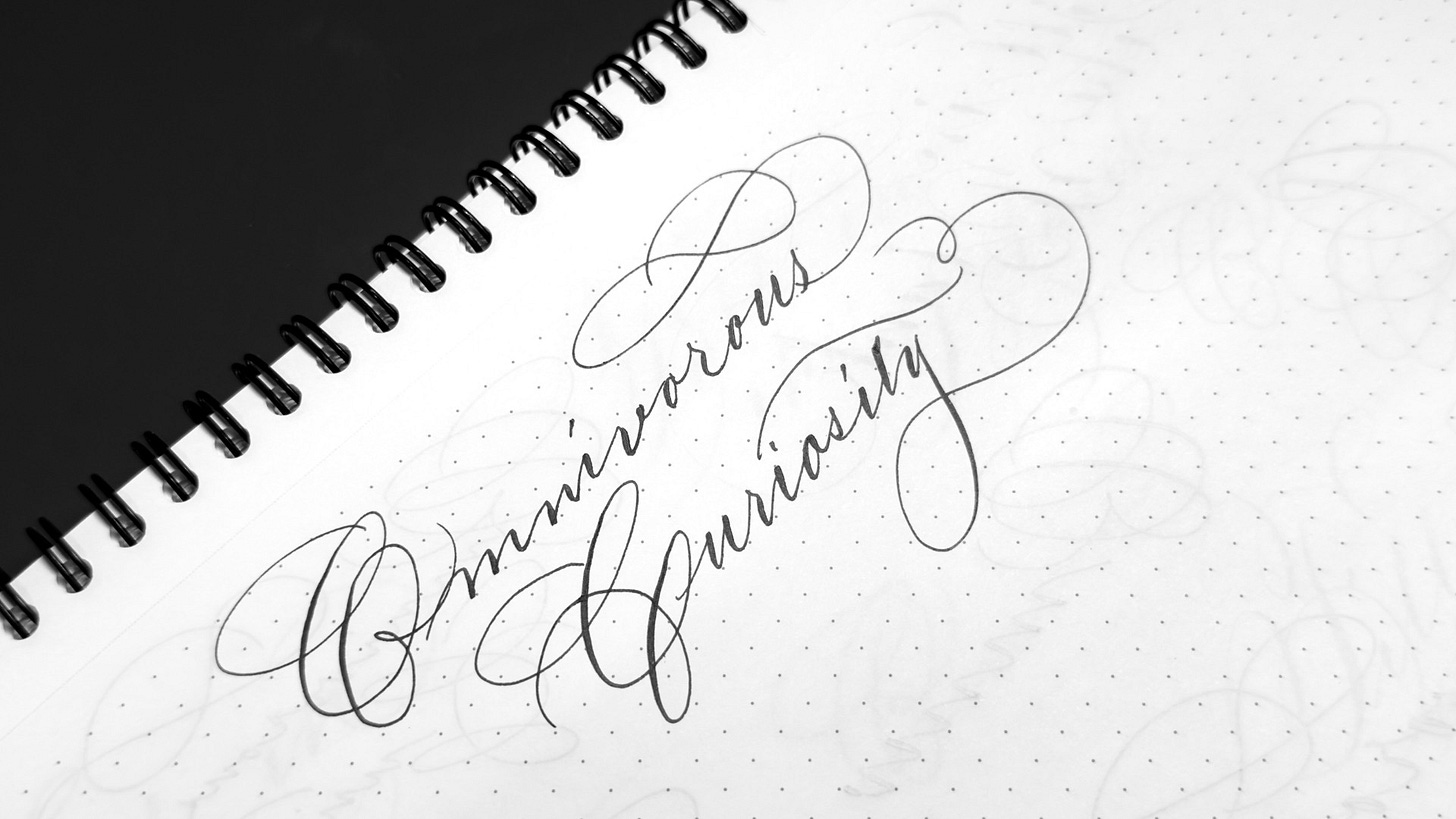 Omnivorous
Curiosity